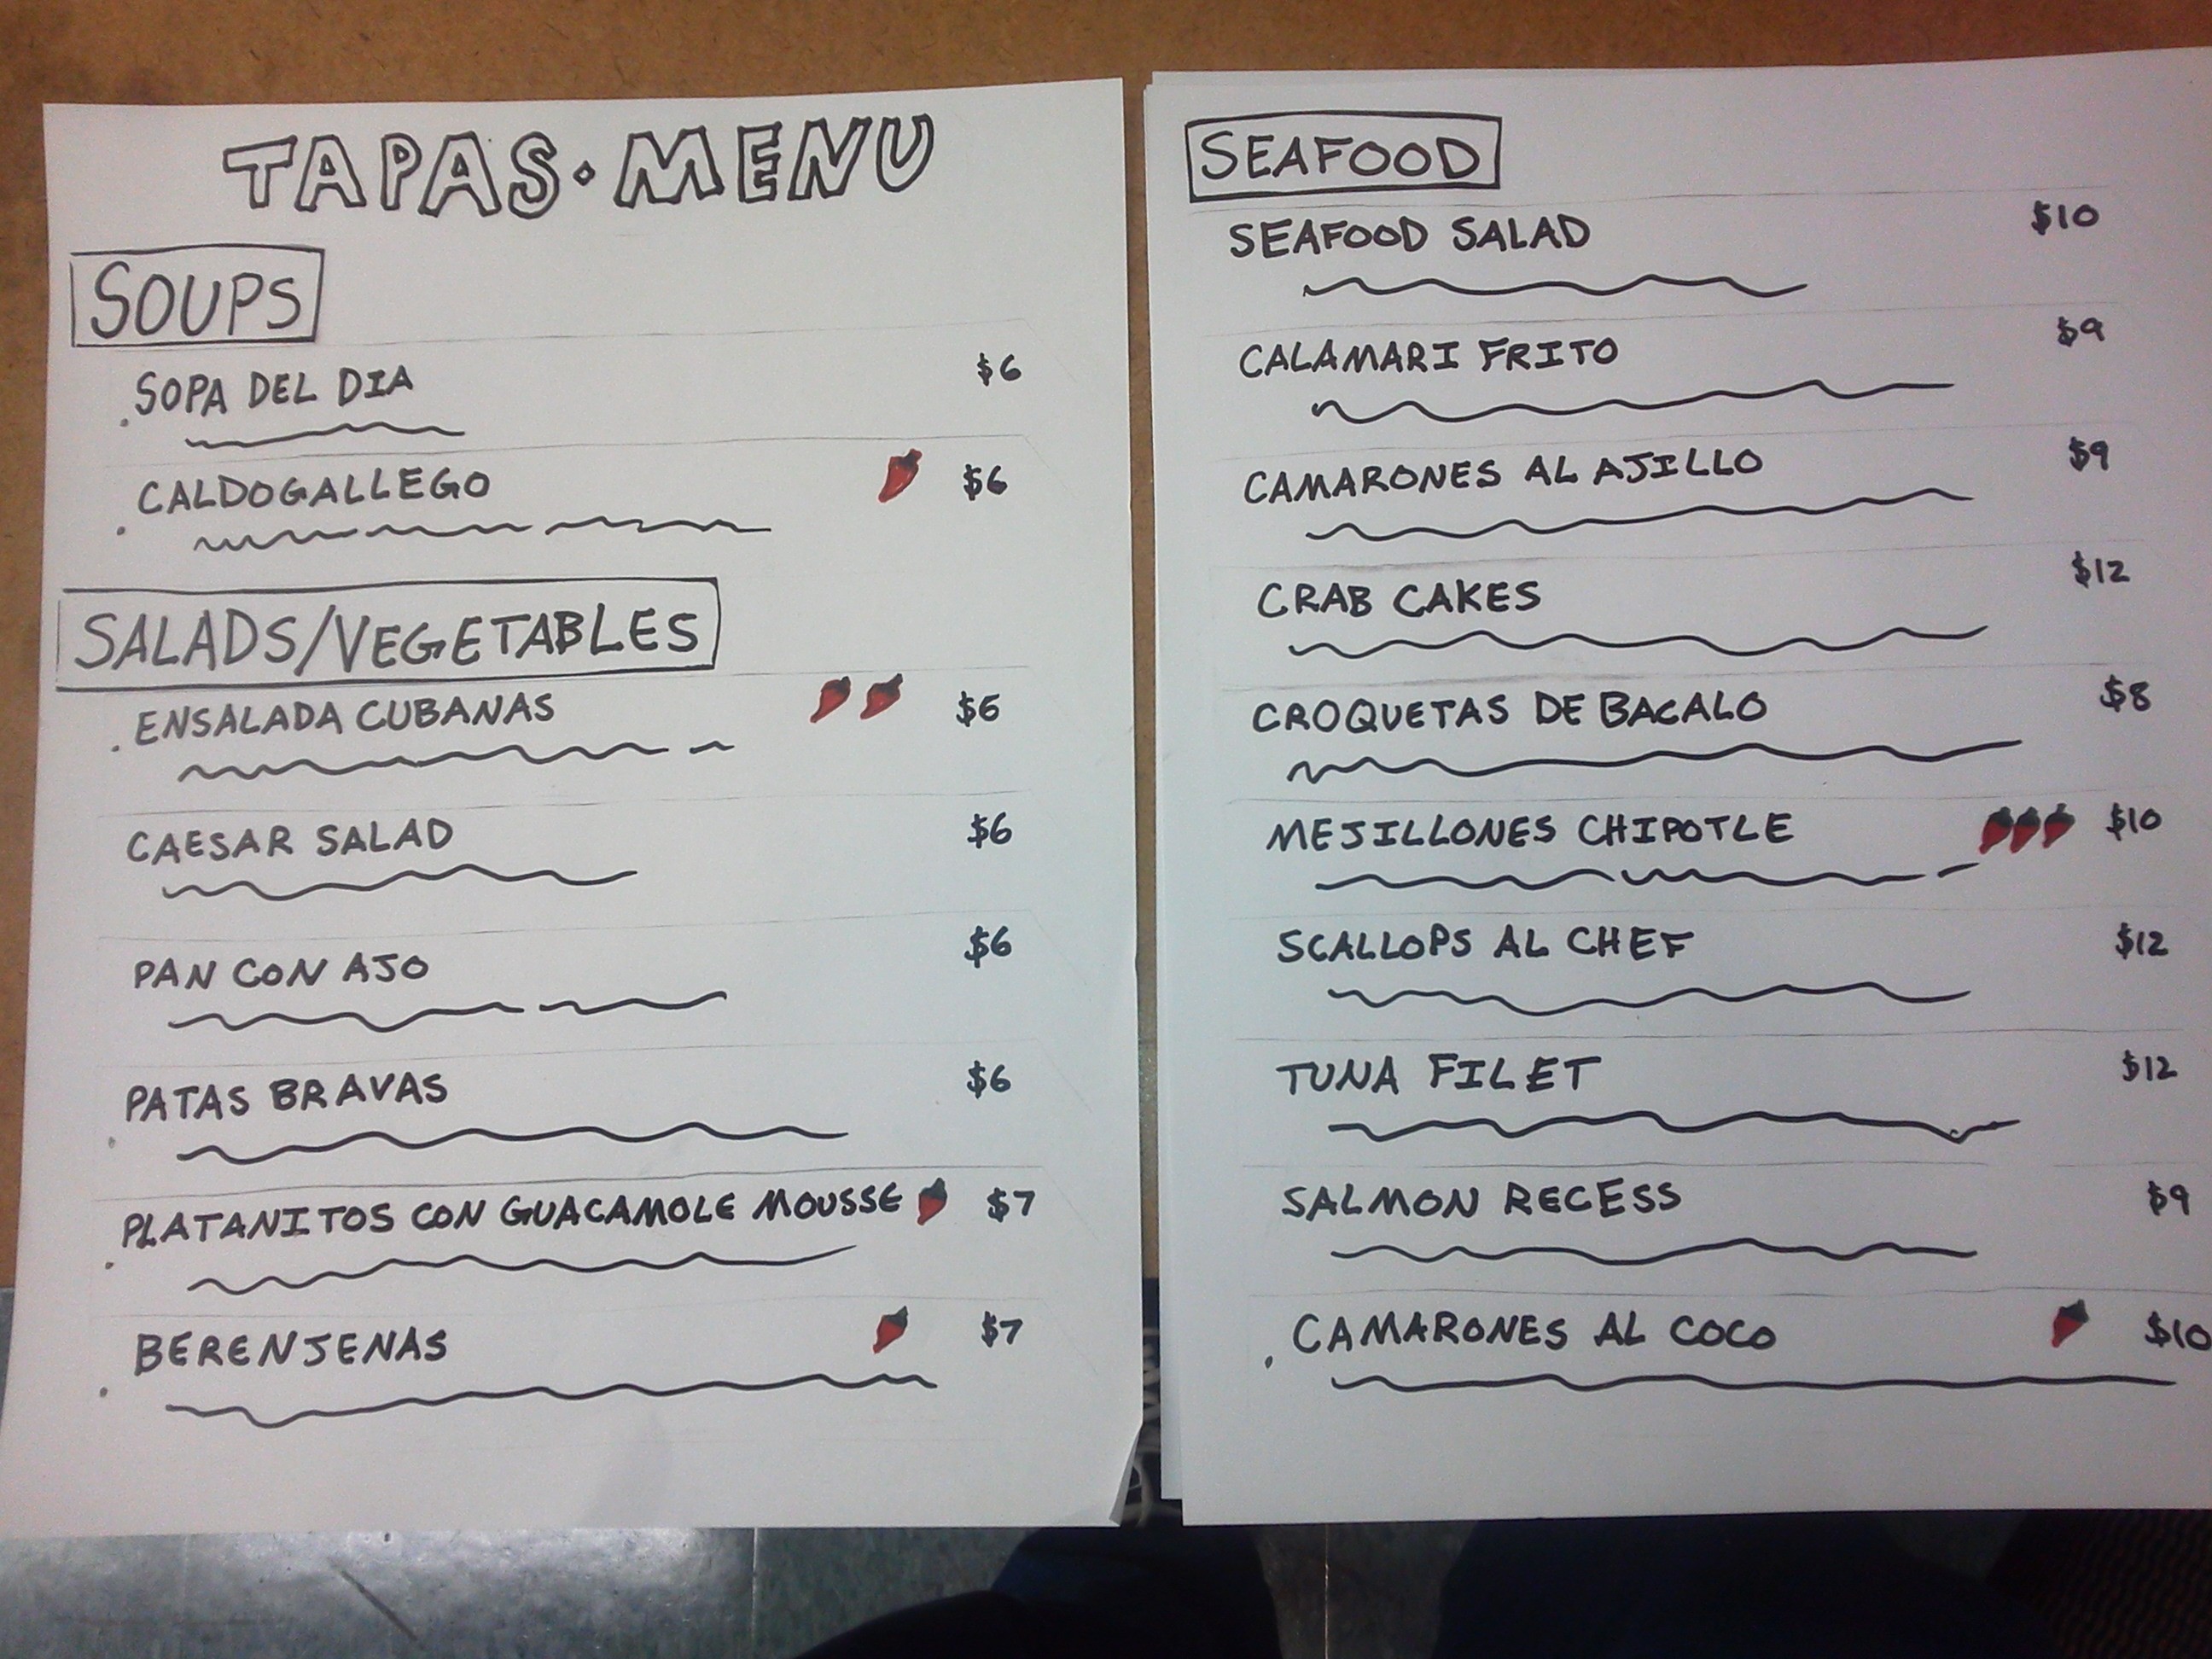 TAPAS·MENU
SOUPS
SOPA DEL DIA $6
CALDOGALLEGO $6
SALADS/VEGETABLES
ENSALADA CUBANAS $6
CAESAR SALAD $6
PAN CON AJO $6
PATAS BRAVAS $6
PLATANITOS CON GUACAMOLE MOUSSE $7
BERENJENAS $7
SEAFOOD
SEAFOOD SALAD $10
CALAMARI FRITO $9
CAMARONES AL AJILLO $9
CRAB CAKES $12
CROQUETAS DE BACALO $8
MEJILLONES CHIPOTLE $10
SCALLOPS AL CHEF $12
TUNA FILET $12
SALMON RECESS $9
CAMARONES AL COCO $10